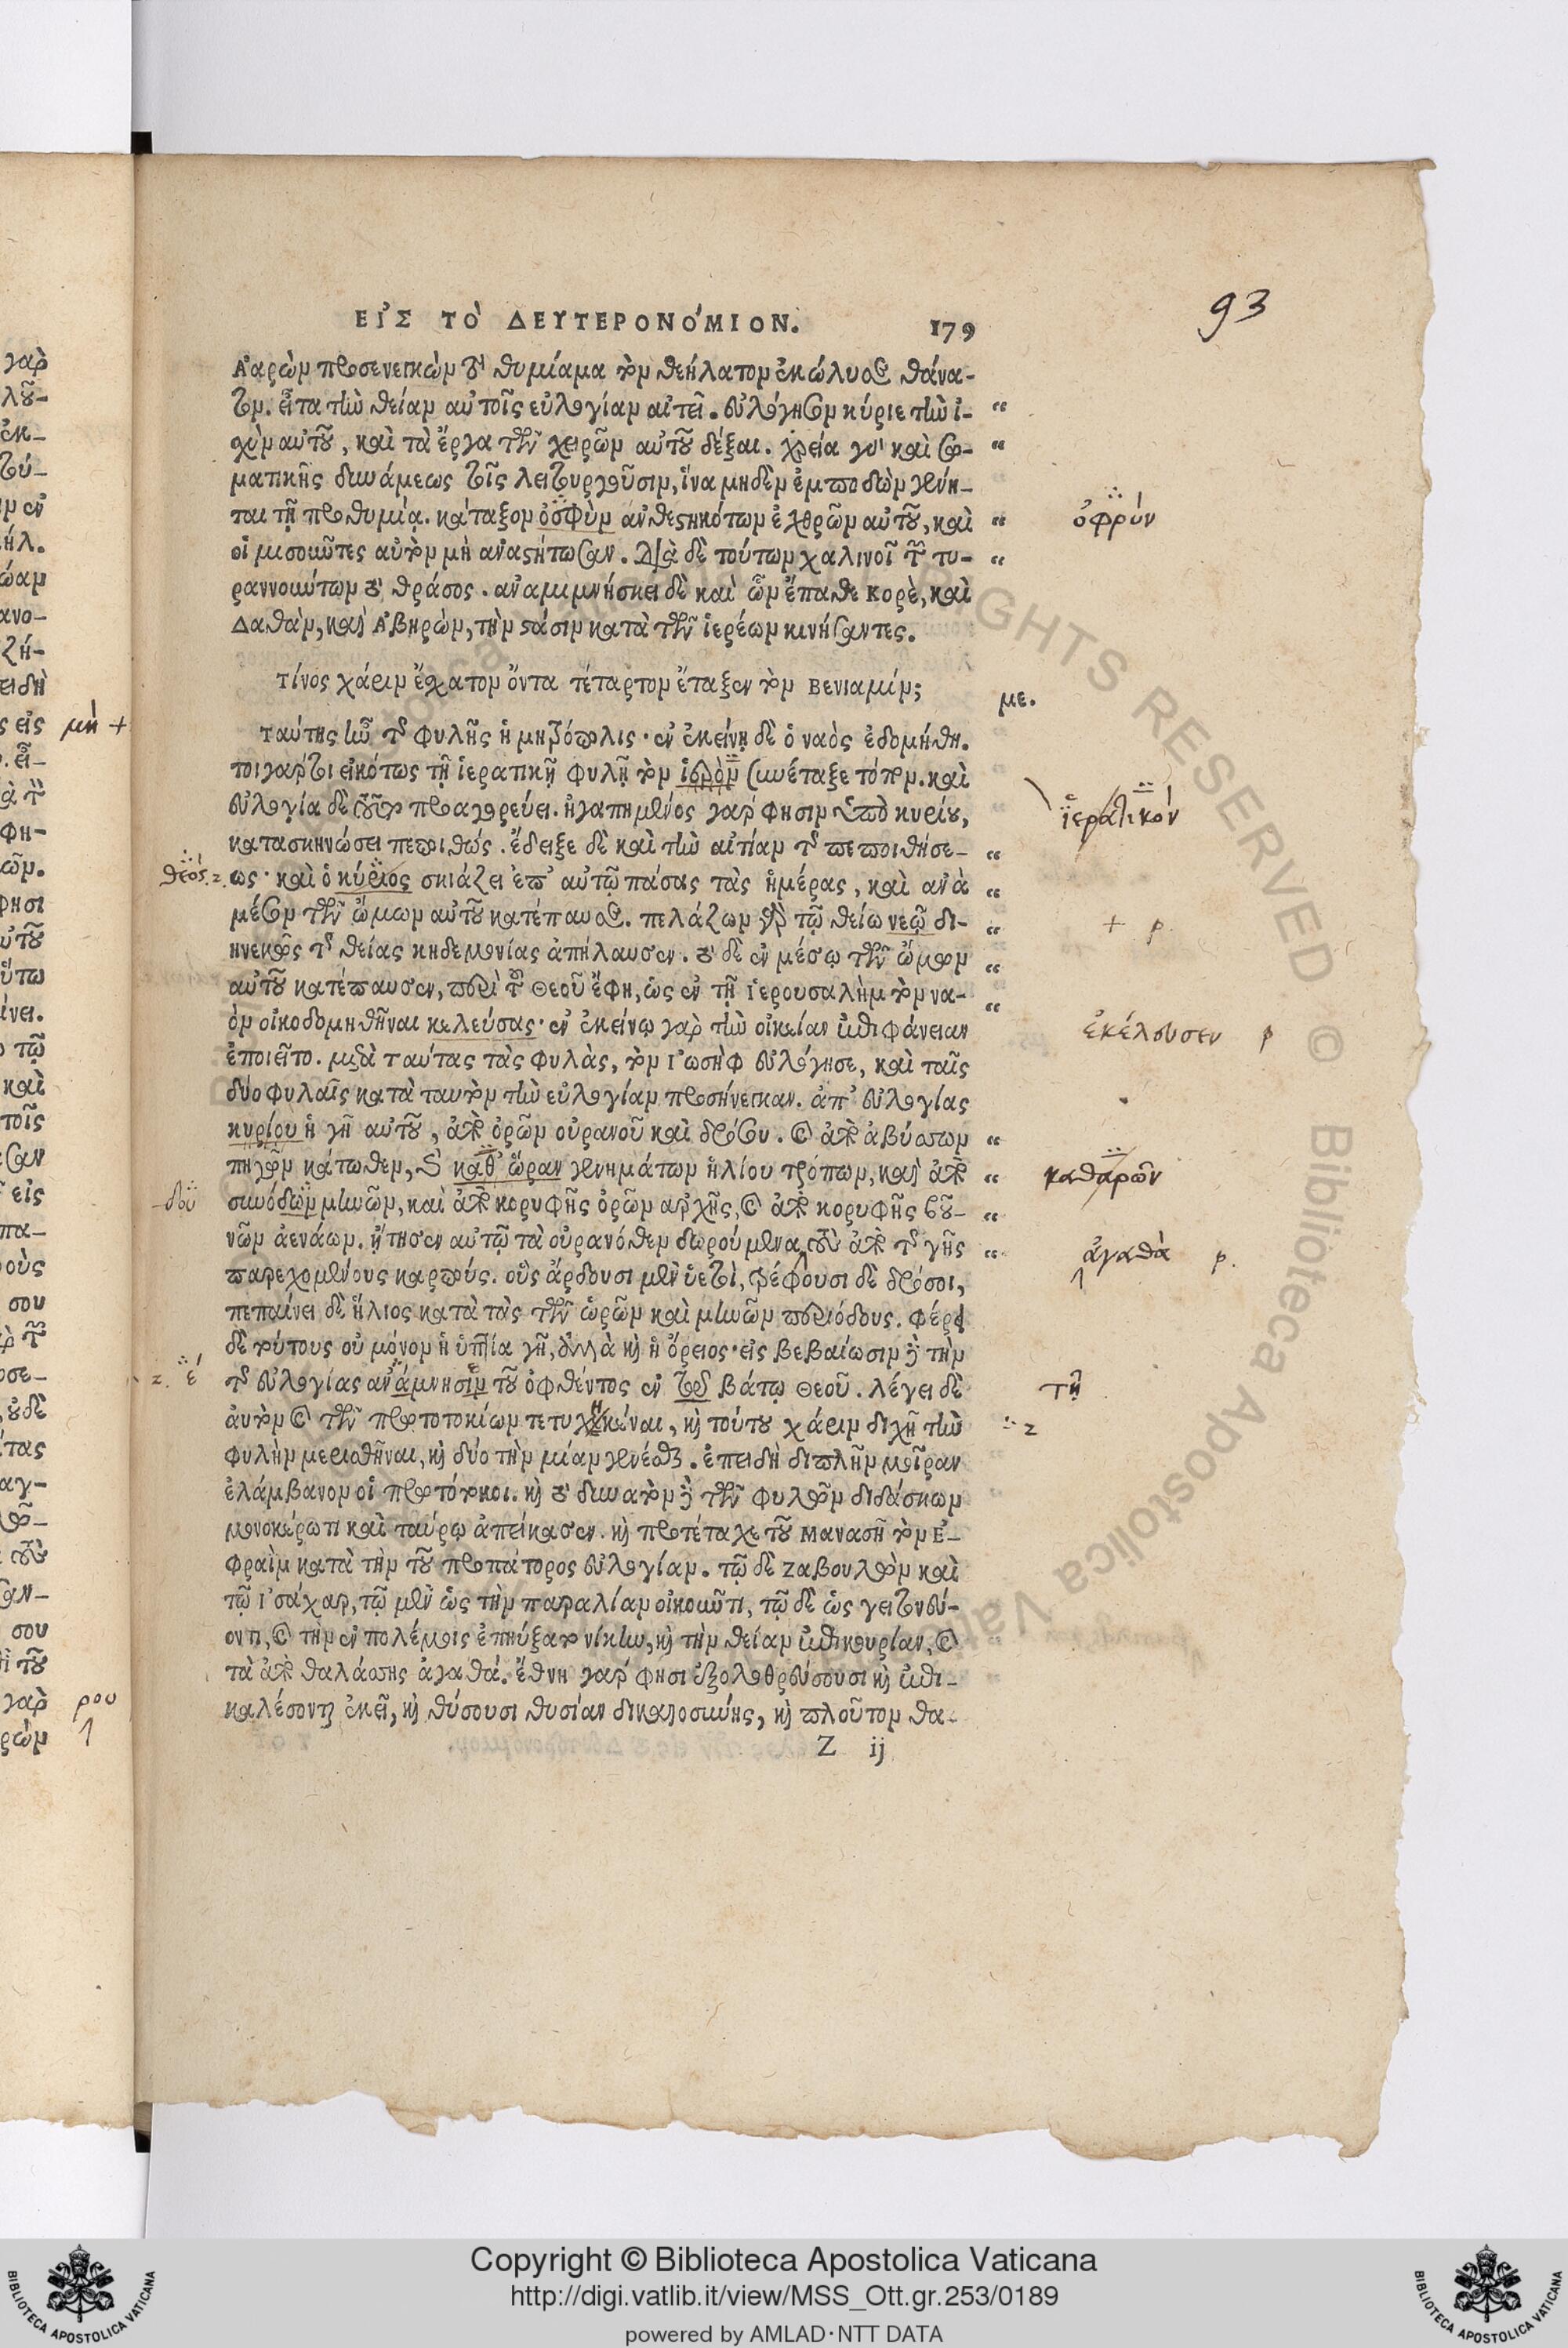 93
ΕΙ᾿Σ ΤΟ` ΔΕΥΤΕΡΟΝΟ´ΜΙΟΝ. 179
Ἀαρὼν προσενεγκὼν τὸ θυμίαμα τὸν θεήλατον ἐκώλυσε θάνα-
τον. εἶτα τὴν θείαν αὐτοῖς εὐλογίαν αἰτεῖ. εὐλόγησον κύριε τὴν ἰ- “
χὺν αὐτοῦ, καὶ τὰ ἔργα τῶν χειρῶν αὐτοῦ δέξαι. χρεία γὰρ καὶ σω- “
ματικῆς δυνάμεως τοῖς λειτουργοῦσιν, ἵνα μηδὲν ἐμποδὼν γένη-
ται τῇ προθυμίᾳ. κάταξον ὀσφὺν ἀνθεστηκότων ἐχθρῶν αὐτοῦ, καὶ “ ὀφρύν
οἱ μισοῦντες αὐτὸν μὴ ἀναστήτωσαν. Διὰ δὲ τούτων χαλινοῖ τῶν τυ- “
ραννούντων τὸ θράσος. ἀναμιμνήσκει δὲ καὶ ὧν ἔπαθε Κορὲ, καὶ
Δαθὰν, καὶ Ἀβηρὼν, τὴν στάσιν κατὰ τῶν ἱερέων κινήσαντες.
Τίνος χάριν ἔσχατον ὄντα τέταρτον ἔταξεν τὸν Βενιαμίν; με.
Ταύτης ἦν τῆς φυλῆς ἡ μητρόπολις· ἐν ἐκείνῃ δὲ ὁ ναὸς ἐδομήθη.
τοιγάρτοι εἰκότως τῇ ἱερατικῇ φυλῇ τὸν ἱερὸν συνέταξε τόπον. καὶ
εὐλογία δὲ τοῦτο προαγορεύει. ἠγαπημένος γάρ φησιν ὑπὸ κυρίου, ἱερατικόν
κατασκηνώσει πεποιθώς. ἔδειξε δὲ καὶ τὴν αἰτίαν τῆς πεποιθήσε- “
θεός. z. ως· καὶ ὁ κύριος σκιάζει ἐπ’ αὐτῷ πάσας τὰς ἡμέρας, καὶ ἀνὰ “
μέσον τῶν ὤμων αὐτοῦ κατέπαυσε. πελάζων γὰρ τῷ θείῳ νεῷ δι- “ + ρ.
ηνεκῶς τῆς θείας κηδεμονίας ἀπήλαυσεν. τὸ δὲ ἐν μέσῳ τῶν ὤμων “
αὐτοῦ κατέπαυσεν, περὶ τοῦ Θεοῦ ἔφη, ὡς ἐν τῇ Ἱερουσαλὴμ τὸν να- “
ὸν οἰκοδομηθῆναι κελεύσας· ἐν ἐκείνῳ γὰρ τὴν οἰκείαν ἐπιφάνειαν ἐκέλευσεν ρ
ἐποιεῖτο. μετὰ ταύτας τὰς φυλὰς, τὸν Ἰωσὴφ εὐλόγησε, καὶ ταῖς
δύο φυλαῖς κατὰ ταυτὸν τὴν εὐλογίαν προσήνεγκαν. ἀπ’ εὐλογίας
κυρίου ἡ γῆ αὐτοῦ, ἀπὸ ὁρῶν οὐρανοῦ καὶ δρόσου. καὶ ἀπὸ ἀβύσσων “
πηγῶν κάτωθεν, καὶ καθ’ ὥραν γενημάτων ἡλίου τρόπων, καὶ ἀπὸ “ καθαρῶν
-δου συνόδων μηνῶν, καὶ ἀπὸ κορυφῆς ὀρῶν ἀρχῆς, καὶ ἀπὸ κορυφῆς βου- “
νῶν ἀενάων. ᾔτησεν αὐτῷ τὰ οὐρανόθεν δωρούμενα, καὶ τοὺς ἀπὸ τῆς γῆς “ ἀγαθὰ ρ.
παρεχομένους καρπούς. οὓς ἄρδουσι μὲν ὑετοὶ, τρέφουσι δὲ δρόσοι,
πεπαίνει δὲ ἥλιος κατὰ τὰς τῶν ὡρῶν καὶ μηνῶν περιόδους. φέρει
δὲ τούτους οὐ μόνον ἡ ὑπτία γῆ, ἀλλὰ καὶ ἡ ὄρειος· εἰς βεβαίωσιν δὲ τὴν
z. έ τῆς εὐλογίας ἀνάμνησιν τοῦ ὀφθέντος ἐν τῷ βάτῳ Θεοῦ. λέγει δὲ τῇ
αὐτὸν καὶ τῶν πρωτοτοκίων τετυχηκέναι, καὶ τούτου χάριν διχῆ τὴν z
φυλὴν μερισθῆναι, καὶ δύο τὴν μίαν γενέσθαι. ἐπειδὴ διπλῆν μοῖραν
ἐλάμβανον οἱ πρωτότοκοι. καὶ τὸ δυνατὸν δὲ τῶν φυλῶν διδάσκων
μονοκέρωτι καὶ ταύρῳ ἀπείκασεν. καὶ προτέταχε τοῦ Μανασῆ τὸν Ἐ-
φραῒμ κατὰ τὴν τοῦ προπάτορος εὐλογίαν. τῷ δὲ Ζαβουλὼν καὶ
τῷ Ἰσάχαρ, τῷ μὲν ὡς τὴν παραλίαν οἰκοῦντι, τῷ δὲ ὡς γειτονεύ-
οντι, καὶ τὴν ἐν πολέμοις ἐπηύξατο νίκην, καὶ τὴν θείαν ἐπικουρίαν, καὶ
τὰ ἀπὸ θαλάσσης ἀγαθά. ἔθνη γάρ φησι ἐξολοθρεύσουσι καὶ ἐπι-
καλέσονται ἐκεῖ, καὶ θύσουσι θυσίαν δικαιοσύνης, καὶ πλοῦτον θα-
Z ij
Copyright © Biblioteca Apostolica Vaticana
http://digi.vatlib.it/view/MSS_Ott.gr.253/0189
powered by AMLAD·NTT DATA